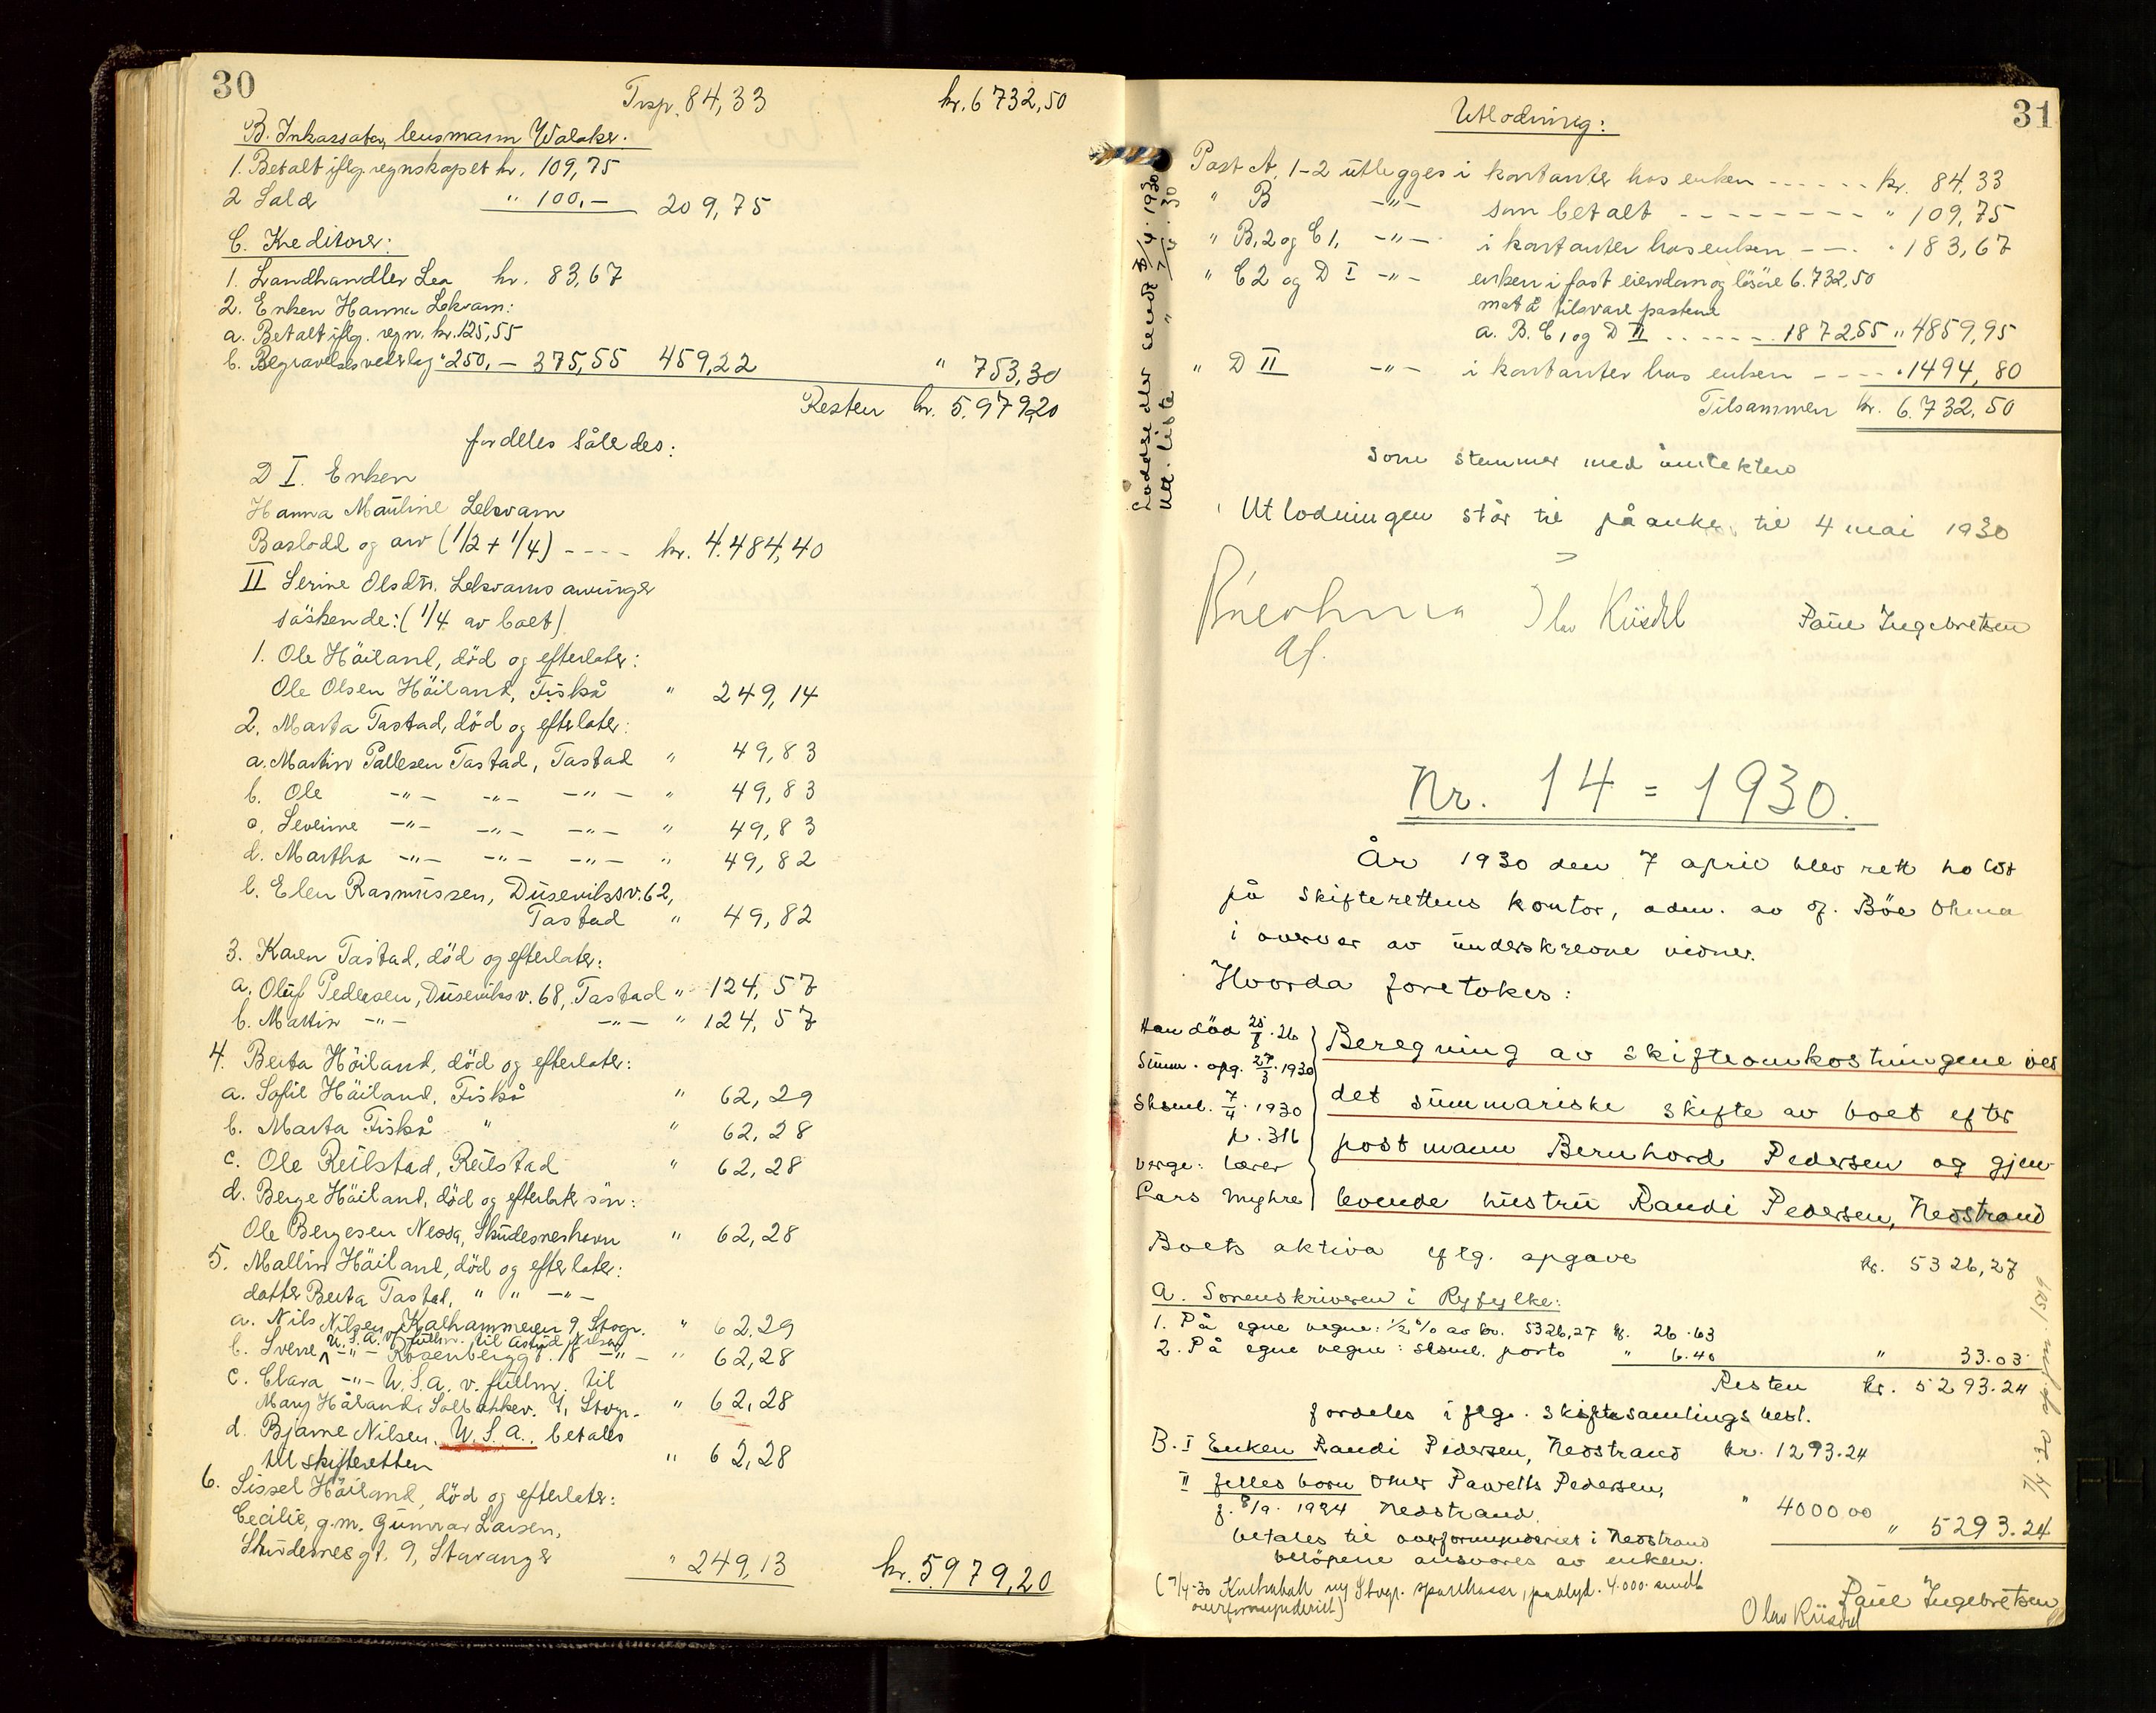 30
Trsp. 84,33 kr. 6732,50
B. Inkassator, lensmann Walaker.
1. Betalt iflg. regnskapet kr. 109,75
2 Salær " 100,- 209,75
C. Kreditorer:
1. Landhandler Lea kr. 83,67
2. Enken Hanna Lekvam:
a. Betalt iflg. regn. kr. 125,55
b. Begravelsesvederlag " 250,- 375,55 459,22 " 753,30
Resten kr. 5.979,20
fordeles således:
D I. Enken
Hanna Mauline Lekvam
Boslodd og arv (1/2 + 1/4) ---- kr. 4.484,40
II Serine Olsdtr. Lekvams arvinger
søskende: (1/4 av boet)
1. Ole Høiland, død og efterlater:
Ole Olsen Høiland, Fiskå " 249,14
2. Marta Tastad, død og efterlater:
a. Martin Pallesen Tastad, Tastad " 49,83
b. Ole -"- -"- -"- " 49,83
c. Severine -"- -"- -"- " 49,83
d. Martha -"- -"- -"- " 49,82
e. Elen Rasmussen, Duseviksv. 62,
Tastad " 49,82
3. Karen Tastad, død og efterlater:
a. Oluf Pedersen, Duseviksv. 68, Tastad " 124,57
b. Martin -"- -"- " 124,57
4. Berta Høiland, død og efterlater:
a. Sofie Høiland, Fiskå " 62,29
b. Marta Fiskå " " 62,28
c. Ole Reilstad, Reilstad " 62,28
d. Berge Høiland, død og efterlatt søn:
Ole Bergesen Nessa, Skudesneshavn " 62,28
5. Mallin Høiland, død og efterlater:
datter Berta Tastad, " " -"-
a. Nils Nilsen, Kalhammeren 9, Stvgr. " 62,29
U.S.A. v/ fullm. til Astrid Nilsen
b. Sverre -"- Rosenberggt. 18 -"- " 62,28
c. Clara -"- U.S.A. v. fullm. til
Mary Håland, Solbakkev. 7, Stvgr. " 62,28
d. Bjarne Nilsen, U.S.A., betales
till skifteretten " 62,28
6. Sissel Høiland, død og efterlater:
Cecilie, g.m. Gunnar Larsen,
Skudenesgt. 9, Stavanger " 249,13 kr. 5979,20
31
Utlodning:
Post A. 1-2 utlegges i kontanter hos enken ------ kr. 84,33
" B -"- som betalt -------- " 109,75
" B, 2 og C 1, -"- i kontanter hos enken --- " 183,67
" C 2 og D I -"- enken i fast eiendom og løsøre 6.732,50
mot å tilsvare postene
a. B. C 1 og D II ...... 1872,55 " 4859,95
" D II -"- i kontanter hos enken ---- " 1494,80
Tilsammen kr. 6.732,50
som stemmer med inntekten
Utlodningen står til påanke til 4 mai 1930
Olav Kiisdel Paul Ingebretsen
af.
Loddsedler sendt 8/4. 1930
Utl. liste " 7/4. 30
Nr. 14 = 1930.
År 1930 den 7 april blev rett holdt
på skifterettens kontor, adm. av of. Bøe Ohma
i overvær av underskrevne vidner.
Hvorda foretokes:
Han død 25/8. 26
Summ. opg. 27/3. 1930
Sksml. 7/4. 1930
p. 316
Verge: lærer
Lars Myhre
Beregning av skifteomkostningene ved
det summariske skifte av boet efter
postmann Bernhard Pedersen og gjen-
levende hustru Randi Pedersen, Nedstrand
Boets aktiva iflg. opgave kr. 5326,27
A. Sorenskriveren i Ryfylke:
1. På egne vegne: 1/2 % av kr. 5326,27 kr. 26.63
2. På egne vegne: sksml. porto " 6.40 " 33.03
Resten kr. 5293.24
fordeles iflg. skiftesamlings besl.
B. I Enken Randi Pedersen, Nedstrand kr. 1293.24
II felles barn Omer Pawells Pedersen,
f. 8/9. 1924 Nedstrand. " 4000.00 " 5293.24
betales til overformynderiet i Nedstrand
beløpene ansvares av enken.
(7/4-30 Kontrabok ny Stvgr. sparekasse, pålyd. 4.000 sendt
overformynderiet)
Paul Ingebretsen
Olav Kiisdel
7/4. 30 1509